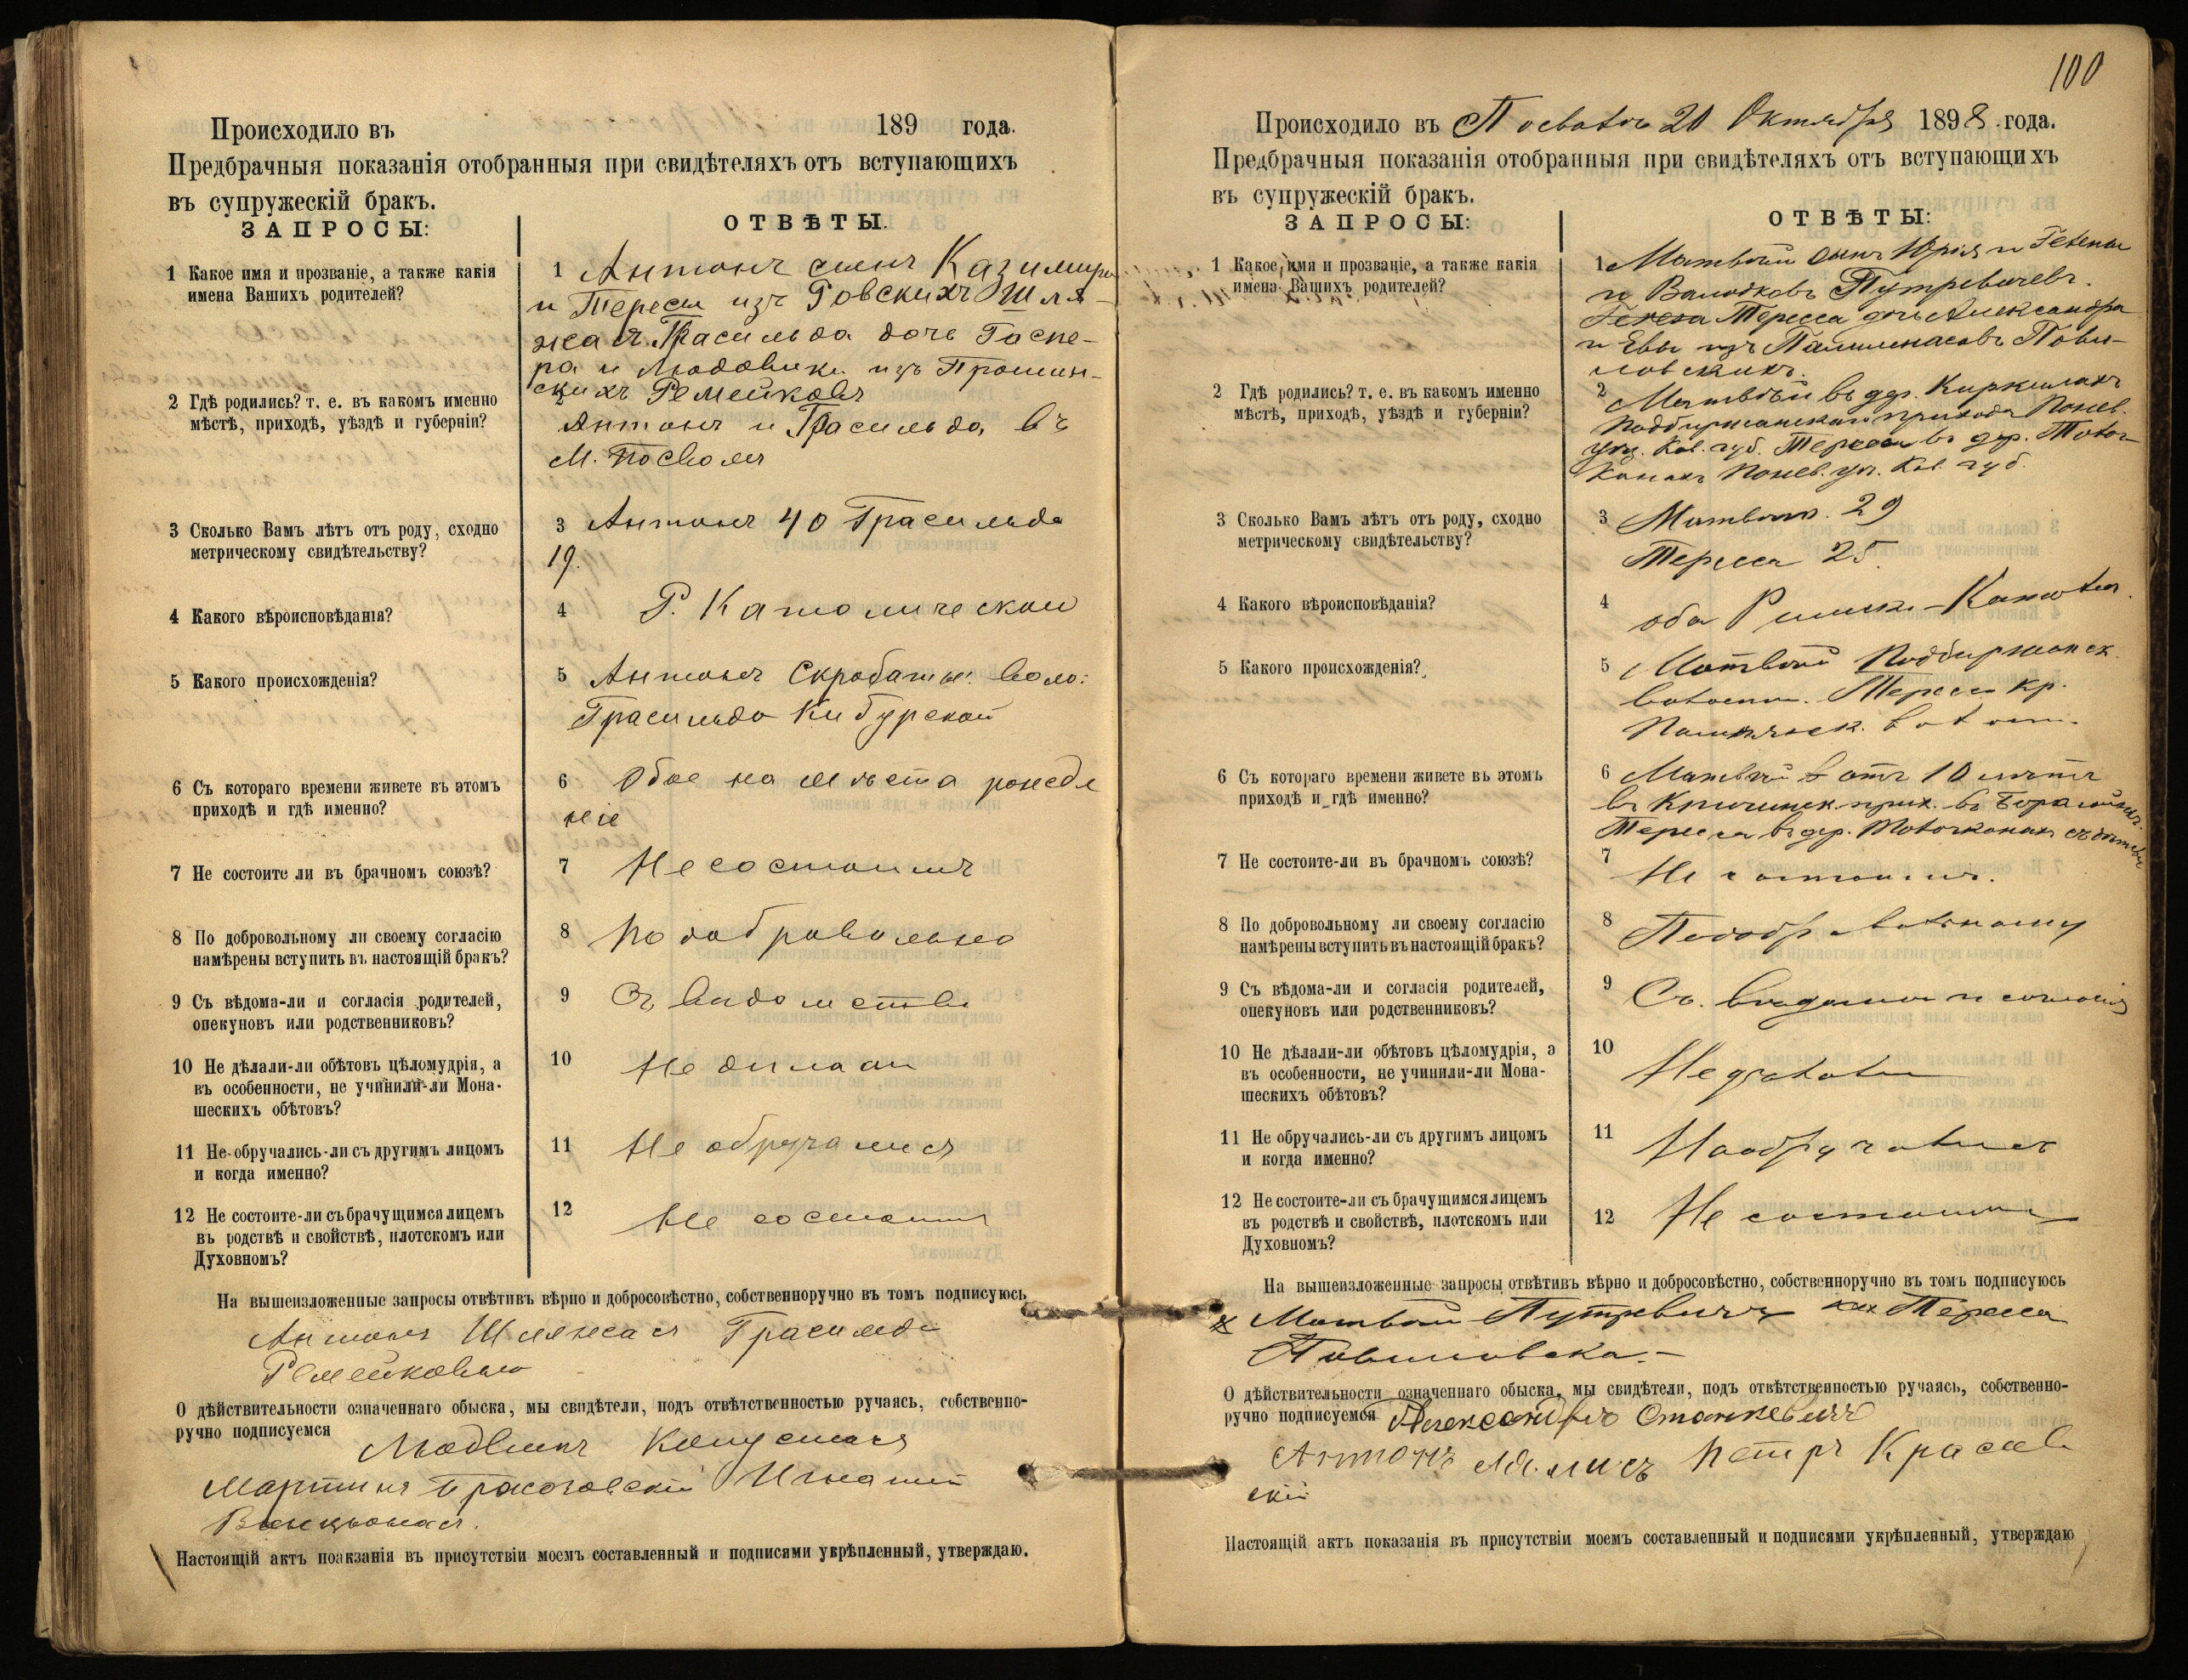 Происходило въ 189 года.
Предбрачныя показанія отобранныя при свидѣтеляхъ отъ вступающихъ
въ супружескій бракъ.
ЗАПРОСЫ:
ОТВѢТЫ.
1 Какое имя и прозваніе, а также какія
имена Вашихъ родителей?
1 Антонъ сынъ Казимира
и Тересы изъ Ровскихъ Шля-
жасъ. Грасильда дочь Гаспе-
ра и Людовики изъ Промин-
скихъ Ремейковъ
2 Гдѣ родились? т. е. въ какомъ именно
мѣстѣ, приходѣ, уѣздѣ и губерніи?
2 Антонъ и Грасильда въ
М. Посволъ
3 Сколько Вамъ лѣтъ отъ роду, сходно
метрическому свидѣтельству?
3 Антонъ 40 Грасильда
19.
4 Какого вѣроисповѣданія?
4 Р. Католическои
5 Какого происхожденія?
5 Антонъ Скробаты. Воло:
Грасильда Кибурской
6 Съ котораго времени живете въ этомъ
приходѣ и гдѣ именно?
6 Обое на мѣста рожеде
ніе
7 Не состоите ли въ брачномъ союзѣ?
7 Несостоимъ
8 По добровольному ли своему согласію
намѣрены вступить въ настоящій бракъ?
8 По добровольно
9 Съ вѣдома-ли и согласія родителей,
опекуновъ или родственниковъ?
9 Съ
10 Не дѣлали-ли обѣтовъ цѣломудрія, а
въ особенности, не учинили-ли Мона-
шескихъ обѣтовъ?
10 Не дилали
11 Не обручались-ли съ другимъ лицомъ
и когда именно?
11 Не обручались
12 Не состоите-ли съ брачущимся лицемъ
въ родствѣ и свойствѣ, плотскомъ или
Духовномъ?
12 Не состоимъ
На вышеизложенные запросы отвѣтивъ вѣрно и добросовѣстно, собственноручно въ томъ подписуюсь
Антонъ Шляжасъ Грасильда
Ремейковъ
О дѣйствительности означеннаго обыска, мы свидѣтели, подъ отвѣтственностью ручаясь, собственно-
ручно подписуемся
Людвикъ
Мартинъ Игнатій
Настоящій актъ поакзанія въ присутствіи моемъ составленный и подписями укрѣпленный, утверждаю.
100
Происходило въ Посволъ 20 Октября 1898 года.
Предбрачныя показанія отобранныя при свидѣтеляхъ отъ вступающихъ
въ супружескій бракъ.
ЗАПРОСЫ:
ОТВѢТЫ:
1 Какое имя и прозваніе, а также какія
имена Вашихъ родителей?
1 Матвѣй сынъ Юрія и Гелены
и Валюдковъ Путревичевъ.
Тереса дочь Александра
и Евы изъ Пови-
ловскихъ.
2 Гдѣ родились? т. е. въ какомъ именно
мѣстѣ, приходѣ, уѣздѣ и губерніи?
2 Матвѣй въ дер. Киркилахъ
Поддиржанскаго прихода Понев.
уѣз. Ков. губ. Тереса въ дер. Толоч-
конахъ Понев. уѣз. Ков. губ.
3 Сколько Вамъ лѣтъ отъ роду, сходно
метрическому свидѣтельству?
3 Матвѣю. 29
Тереса 25.
4 Какого вѣроисповѣданія?
4 оба Римско-Католи.
5 Какого происхожденія?
5 Матвѣй
волости. Тереса кр.
волости.
6 Съ котораго времени живете въ этомъ
приходѣ и гдѣ именно?
6 Матвѣй отъ 10 лѣтъ
въ прих. въ
Тереса въ дер. Толочконахъ съ
7 Не состоите-ли въ брачномъ союзѣ?
7 Не состоимъ.
8 По добровольному ли своему согласію
намѣрены вступить въ настоящій бракъ?
8 Подобровольному
9 Съ вѣдома-ли и согласія родителей,
опекуновъ или родственниковъ?
9 Съ вѣдома и согласія
10 Не дѣлали-ли обѣтовъ цѣломудрія, а
въ особенности, не учинили-ли Мона-
шескихъ обѣтовъ?
10 Недѣлали
11 Не обручались-ли съ другимъ лицомъ
и когда именно?
11 Необручались
12 Не состоите-ли съ брачущимся лицемъ
въ родствѣ и свойствѣ, плотскомъ или
Духовномъ?
12 Не состоимъ
На вышеизложенные запросы отвѣтивъ вѣрно и добросовѣстно, собственноручно въ томъ подписуюсь
Матвѣй Путревичъ Тереса
Повиловска.-
О дѣйствительности означеннаго обыска, мы свидѣтели, подъ отвѣтственностью ручаясь, собственно-
ручно подписуемся Александръ Станкевичъ
Антонъ Петръ Красов
скій
Настоящій актъ показанія въ присутствіи моемъ составленный и подписями укрѣпленный, утверждаю